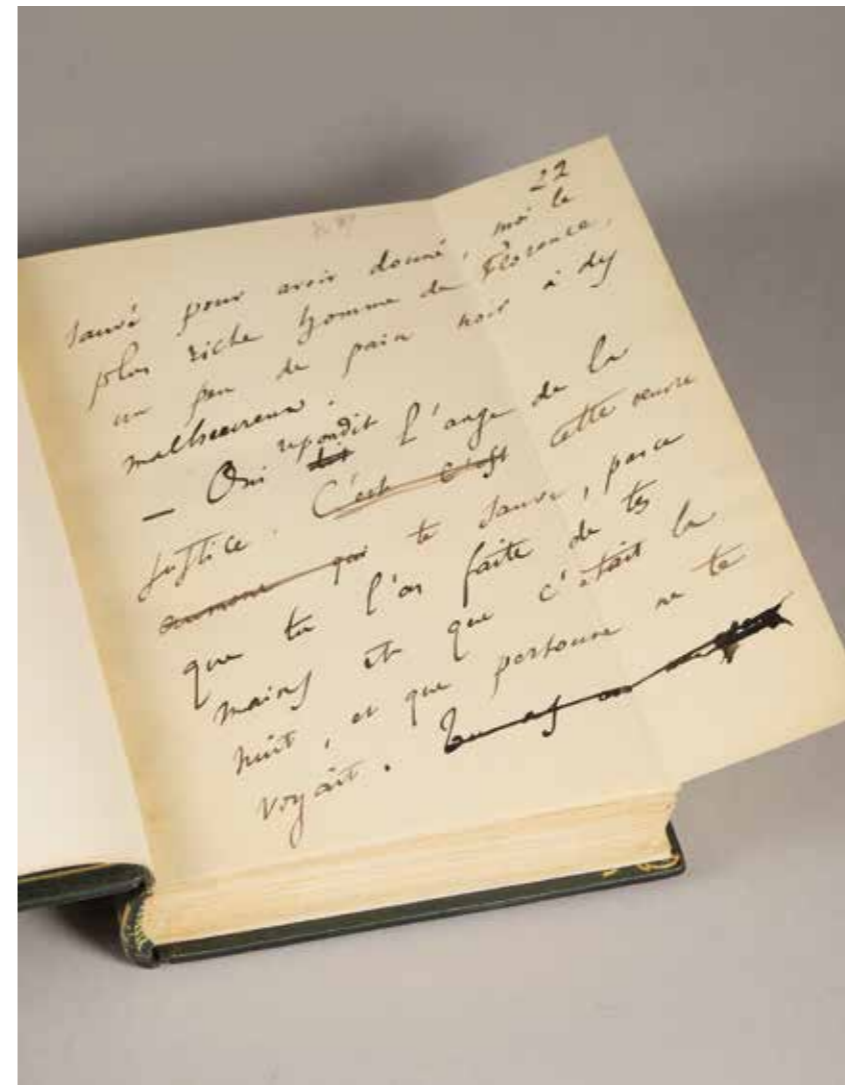 22
sauvé pour avoir donné, moi le
plus riche homme de Florence,
un peu de pain noir à des
malheureux.
— Oui répondit l'ange de la
justice. C'est c'est cette œuvre
aumone qui te sauve, parce
que tu l'as faite de tes
mains et que c'était la
nuit, et que personne ne te
voyait. Tu as